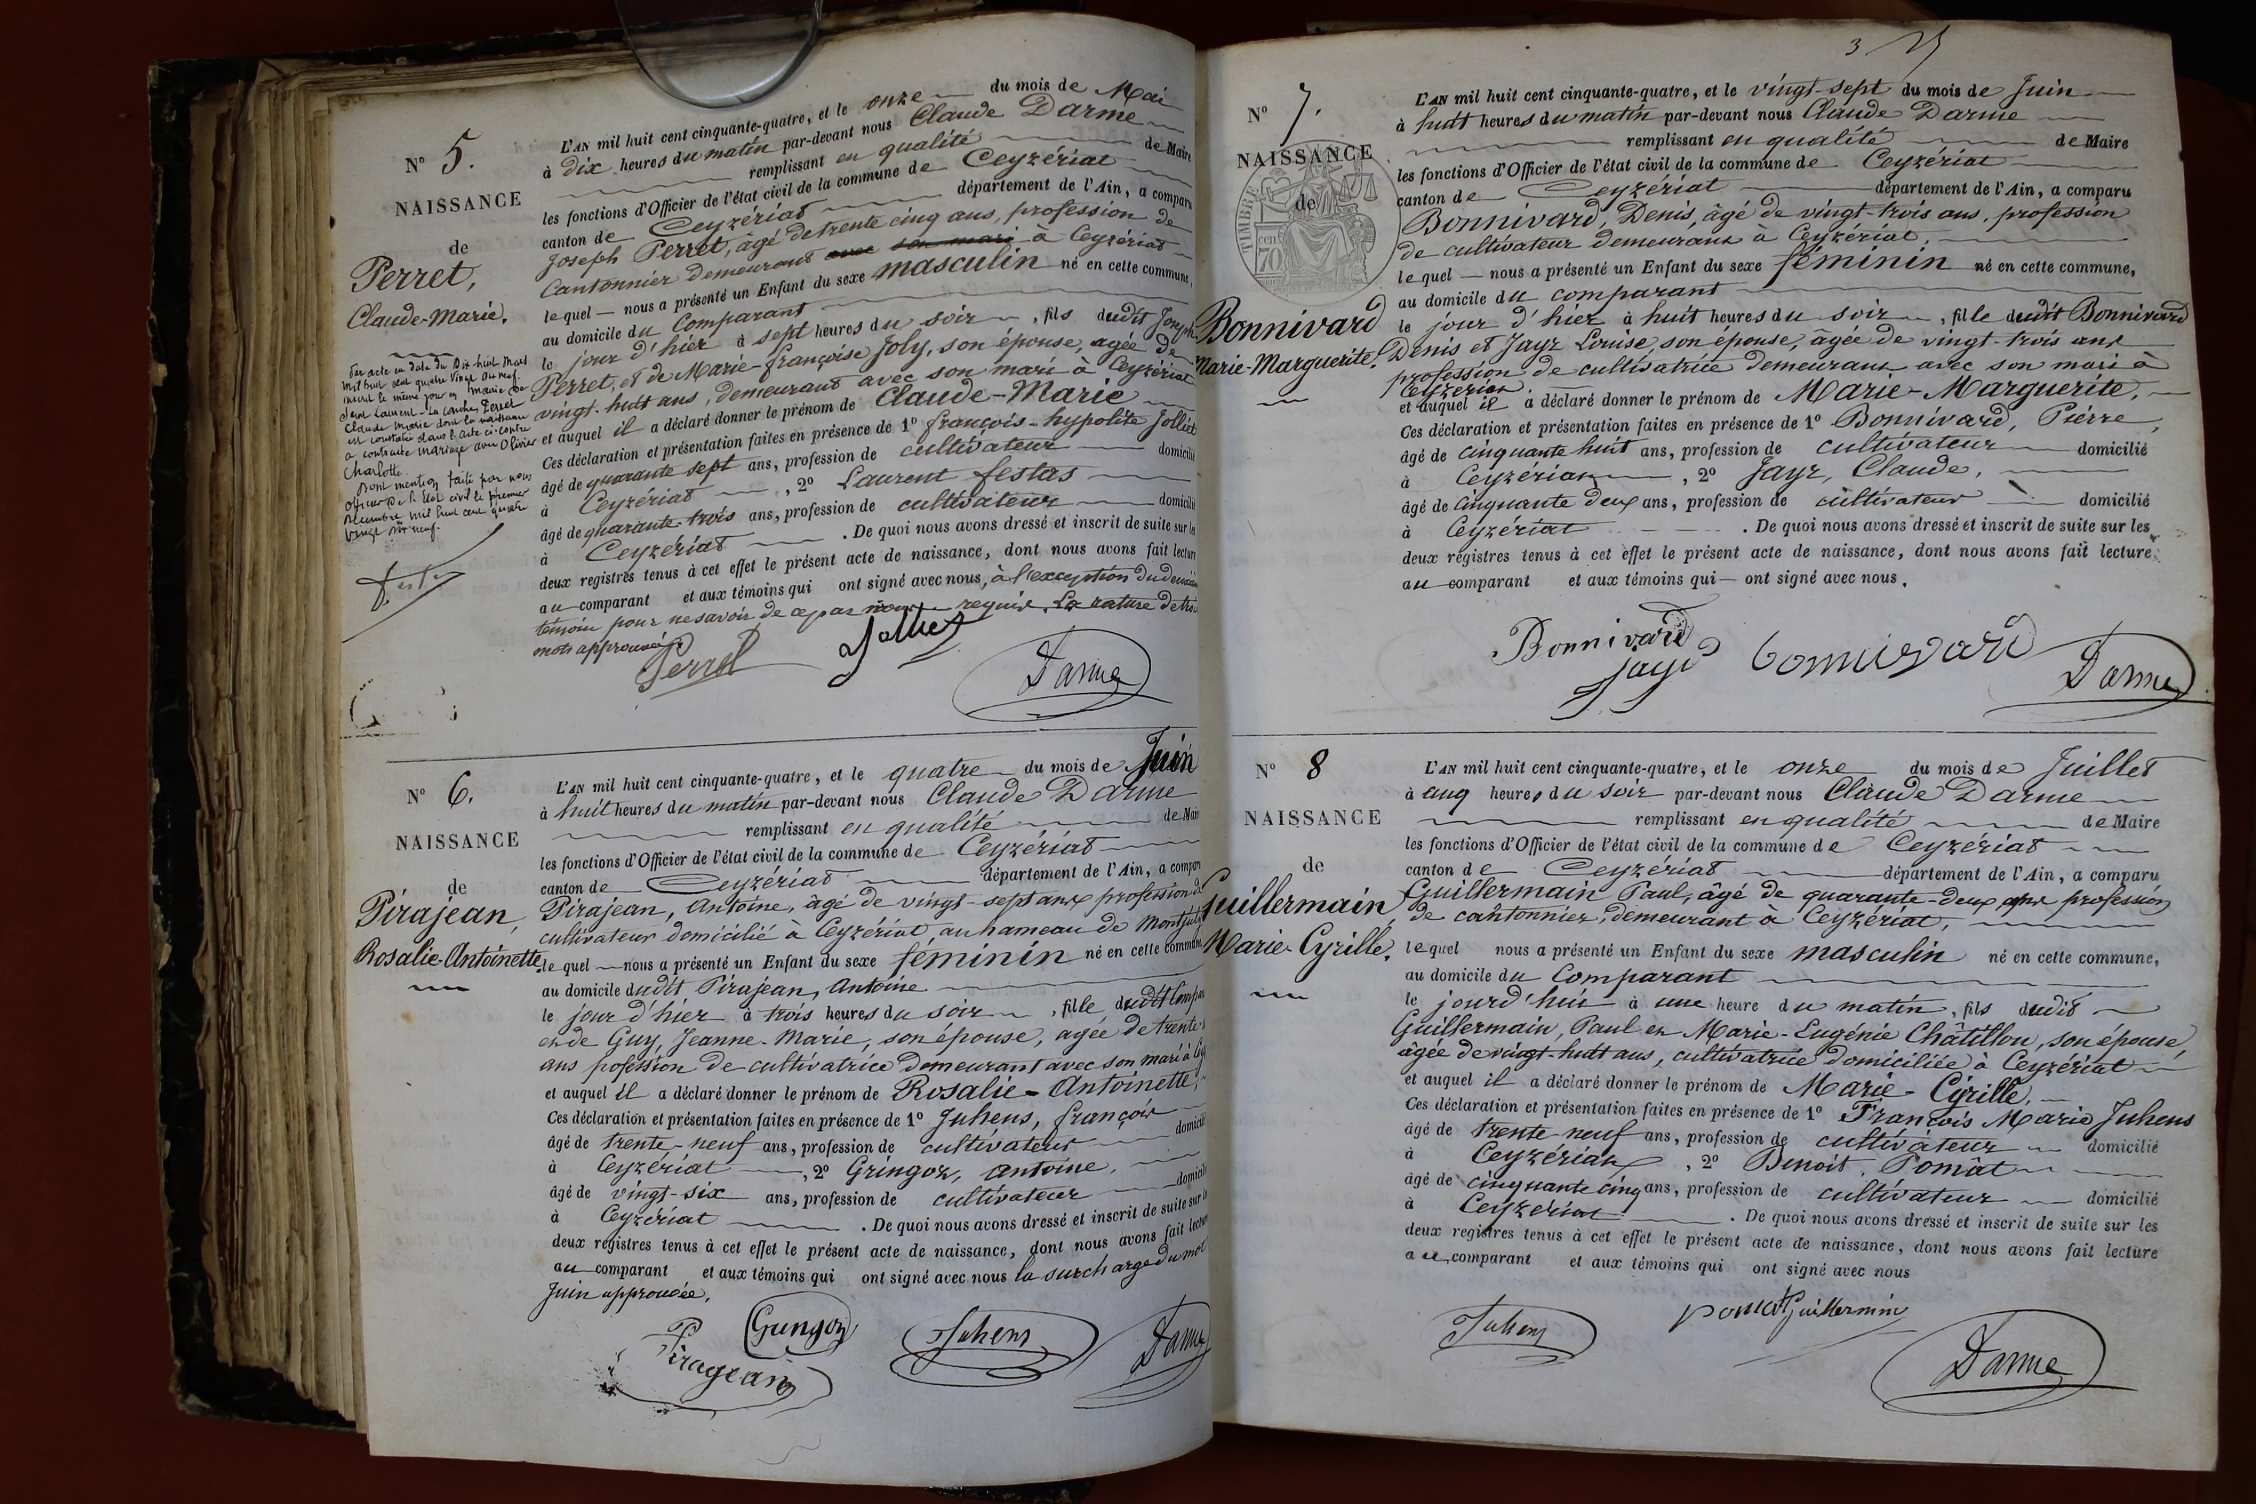 N° 5.
NAISSANCE
de
Perret,
Claude-Marie.
Par acte en date du Dix huit Mars
mil huit cent quatre vingt dix neuf
inscrit le même jour en Mairie de
Saint Laurent-La Conche, Perret
Claude Marie dont la naissance
est constatée dans l'acte ci-contre
a contracté mariage avec Olivier
Charlotte.
Dont mention faite par nous
officier de l'Etat civil le premier
décembre mil huit cent quatre
vingt dix neuf.
L'AN mil huit cent cinquante-quatre, et le onze du mois de Mai
à dix heures du matin par-devant nous Claude Darme
remplissant en qualité de Maire
les fonctions d'Officier de l'état civil de la commune de Ceyzériat
canton de Ceyzériat département de l'Ain, a comparu
Joseph Perret, âgé de trente cinq ans, profession de
Cantonnier demeurant avec son mari à Ceyzériat
lequel nous a présenté un Enfant du sexe masculin né en cette commune,
au domicile du Comparant
le jour d'hier à sept heures du soir, fils dudit Joseph
Perret, et de Marie-françoise Joly, son épouse, agée de
vingt-huit ans, demeurant avec son mari à Ceyzériat
et auquel il a déclaré donner le prénom de Claude-Marie
Ces déclaration et présentation faites en présence de 1° françois-hypolite Jolliet
âgé de quarante sept ans, profession de cultivateur domicilié
à Ceyzériat, 2° Laurent festas
âgé de quarante-trois ans, profession de cultivateur domicilié
à Ceyzériat. De quoi nous avons dressé et inscrit de suite sur les
deux registres tenus à cet effet le présent acte de naissance, dont nous avons fait lecture
au comparant et aux témoins qui ont signé avec nous, à l'exception du deuxième
témoin pour ne savoir de ce par nous requis. La rature de trois
mots approuvée.
Perret Jolliet
Darme
N° 6.
NAISSANCE
de
Pirajean,
Rosalie-Antoinette
L'AN mil huit cent cinquante-quatre, et le quatre du mois de Juin
à huit heures du matin par-devant nous Claude Darme
remplissant en qualité de Maire
les fonctions d'Officier de l'état civil de la commune de Ceyzériat
canton de Ceyzériat département de l'Ain, a comparu
Pirajean, Antoine, âgé de vingt-sept ans profession de
cultivateur domicilié à Ceyzériat au hameau de
lequel nous a présenté un Enfant du sexe féminin né en cette commune
au domicile dudit Pirajean, Antoine
le jour d'hier à trois heures du soir, fille dudit Compar
et de Guy, Jeanne-Marie, son épouse, agée de trente
ans pofession de cultivatrice demeurant avec son mari à Cey
et auquel il a déclaré donner le prénom de Rosalie-Antoinette,
Ces déclaration et présentation faites en présence de 1° Juhens, françois
âgé de trente-neuf ans, profession de cultivateur domicilié
à Ceyzériat, 2° Gringoz, antoine,
âgé de vingt-six ans, profession de cultivateur domicilié
à Ceyzériat. De quoi nous avons dressé et inscrit de suite sur les
deux registres tenus à cet effet le présent acte de naissance, dont nous avons fait lecture
au comparant et aux témoins qui ont signé avec nous la surcharge du mot
Juin approuvée.
Gringoz Juhens Darme
Piragean
3
N° 7.
NAISSANCE
de
TIMBRE
70
Bonnivard
Marie-Marguerite.
L'AN mil huit cent cinquante-quatre, et le vingt-sept du mois de Juin
à huit heures du matin par-devant nous Claude Darme
remplissant en qualité de Maire
les fonctions d'Officier de l'état civil de la commune de Ceyzériat
canton de Ceyzériat département de l'Ain, a comparu
Bonnivard, Denis, âgé de vingt-trois ans, profession
de cultivateur demeurant à Ceyzériat,
lequel nous a présenté un Enfant du sexe féminin né en cette commune,
au domicile du comparant
le jour d'hier à huit heures du soir, fille dudit Bonnivard
Denis et Jayr Louise, son épouse, âgée de vingt-trois ans
profession de cultivatrice demeurant avec son mari à
Ceyzériat
et auquel il a déclaré donner le prénom de Marie-Marguerite,
Ces déclaration et présentation faites en présence de 1° Bonnivard, Pierre,
âgé de cinquante huit ans, profession de cultivateur domicilié
à Ceyzériat, 2° Jayr, Claude,
âgé de cinquante deux ans, profession de cultivateur domicilié
à Ceyzériat. De quoi nous avons dressé et inscrit de suite sur les
deux registres tenus à cet effet le présent acte de naissance, dont nous avons fait lecture
au comparant et aux témoins qui ont signé avec nous.
Bonnivard bonnivard
Jayr Darme
N° 8
NAISSANCE
de
Guillermain
Marie-Cyrille.
L'AN mil huit cent cinquante-quatre, et le onze du mois de Juillet
à cinq heures du soir par-devant nous Claude Darme
remplissant en qualité de Maire
les fonctions d'Officier de l'état civil de la commune de Ceyzériat
canton de Ceyzériat département de l'Ain, a comparu
Guillermain Paul, âgé de quarante-deux ans profession
de cantonnier, demeurant à Ceyzériat,
lequel nous a présenté un Enfant du sexe masculin né en cette commune,
au domicile du Comparant
le jourd'hui à une heure du matin, fils dudit
Guillermain, Paul et Marie-Eugénie Châtillon, son épouse,
âgée de vingt-huit ans, cultivatrice domiciliée à Ceyzériat
et auquel il a déclaré donner le prénom de Marie-Cyrille,
Ces déclaration et présentation faites en présence de 1° François Marie Juhens
âgé de trente-neuf ans, profession de cultivateur domicilié
à Ceyzériat, 2° Benoit Pomât
âgé de cinquante cinq ans, profession de cultivateur domicilié
à Ceyzériat. De quoi nous avons dressé et inscrit de suite sur les
deux registres tenus à cet effet le présent acte de naissance, dont nous avons fait lecture
au comparant et aux témoins qui ont signé avec nous
Juhens pomat Guillermin
Darme